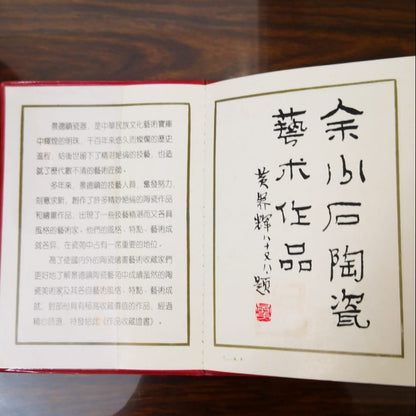 景德鎮瓷器,是中華民族文化藝術寶庫
中輝煌的明珠,千百年來悠久而燦爛的歷史
進程,給後世留下了精湛絕倫的技藝,也造
就了歷代數不清的藝術匠師。
多年來,景德鎮的技藝人員,奮發努力,
刻意求新,創作了許多精妙絕倫的陶瓷作品
和繪畫作品,出現了一些技藝精湛而又各具
風格的藝術家,他們的風格、特點、藝術成
就各異,在瓷苑中占有一席重要的地位。
爲了使國内外的陶瓷繪畫藝術收藏家們
更好地了解景德鎮陶瓷藝苑中成績斐然的陶
瓷美術家及其各的藝術風格、特點、藝術成
就,對部份具有極高收藏價值的作品,經過
精心篩選,特發給此《作品收藏證書》。
余石陶瓷
藝术作品
黄輝八十又八題